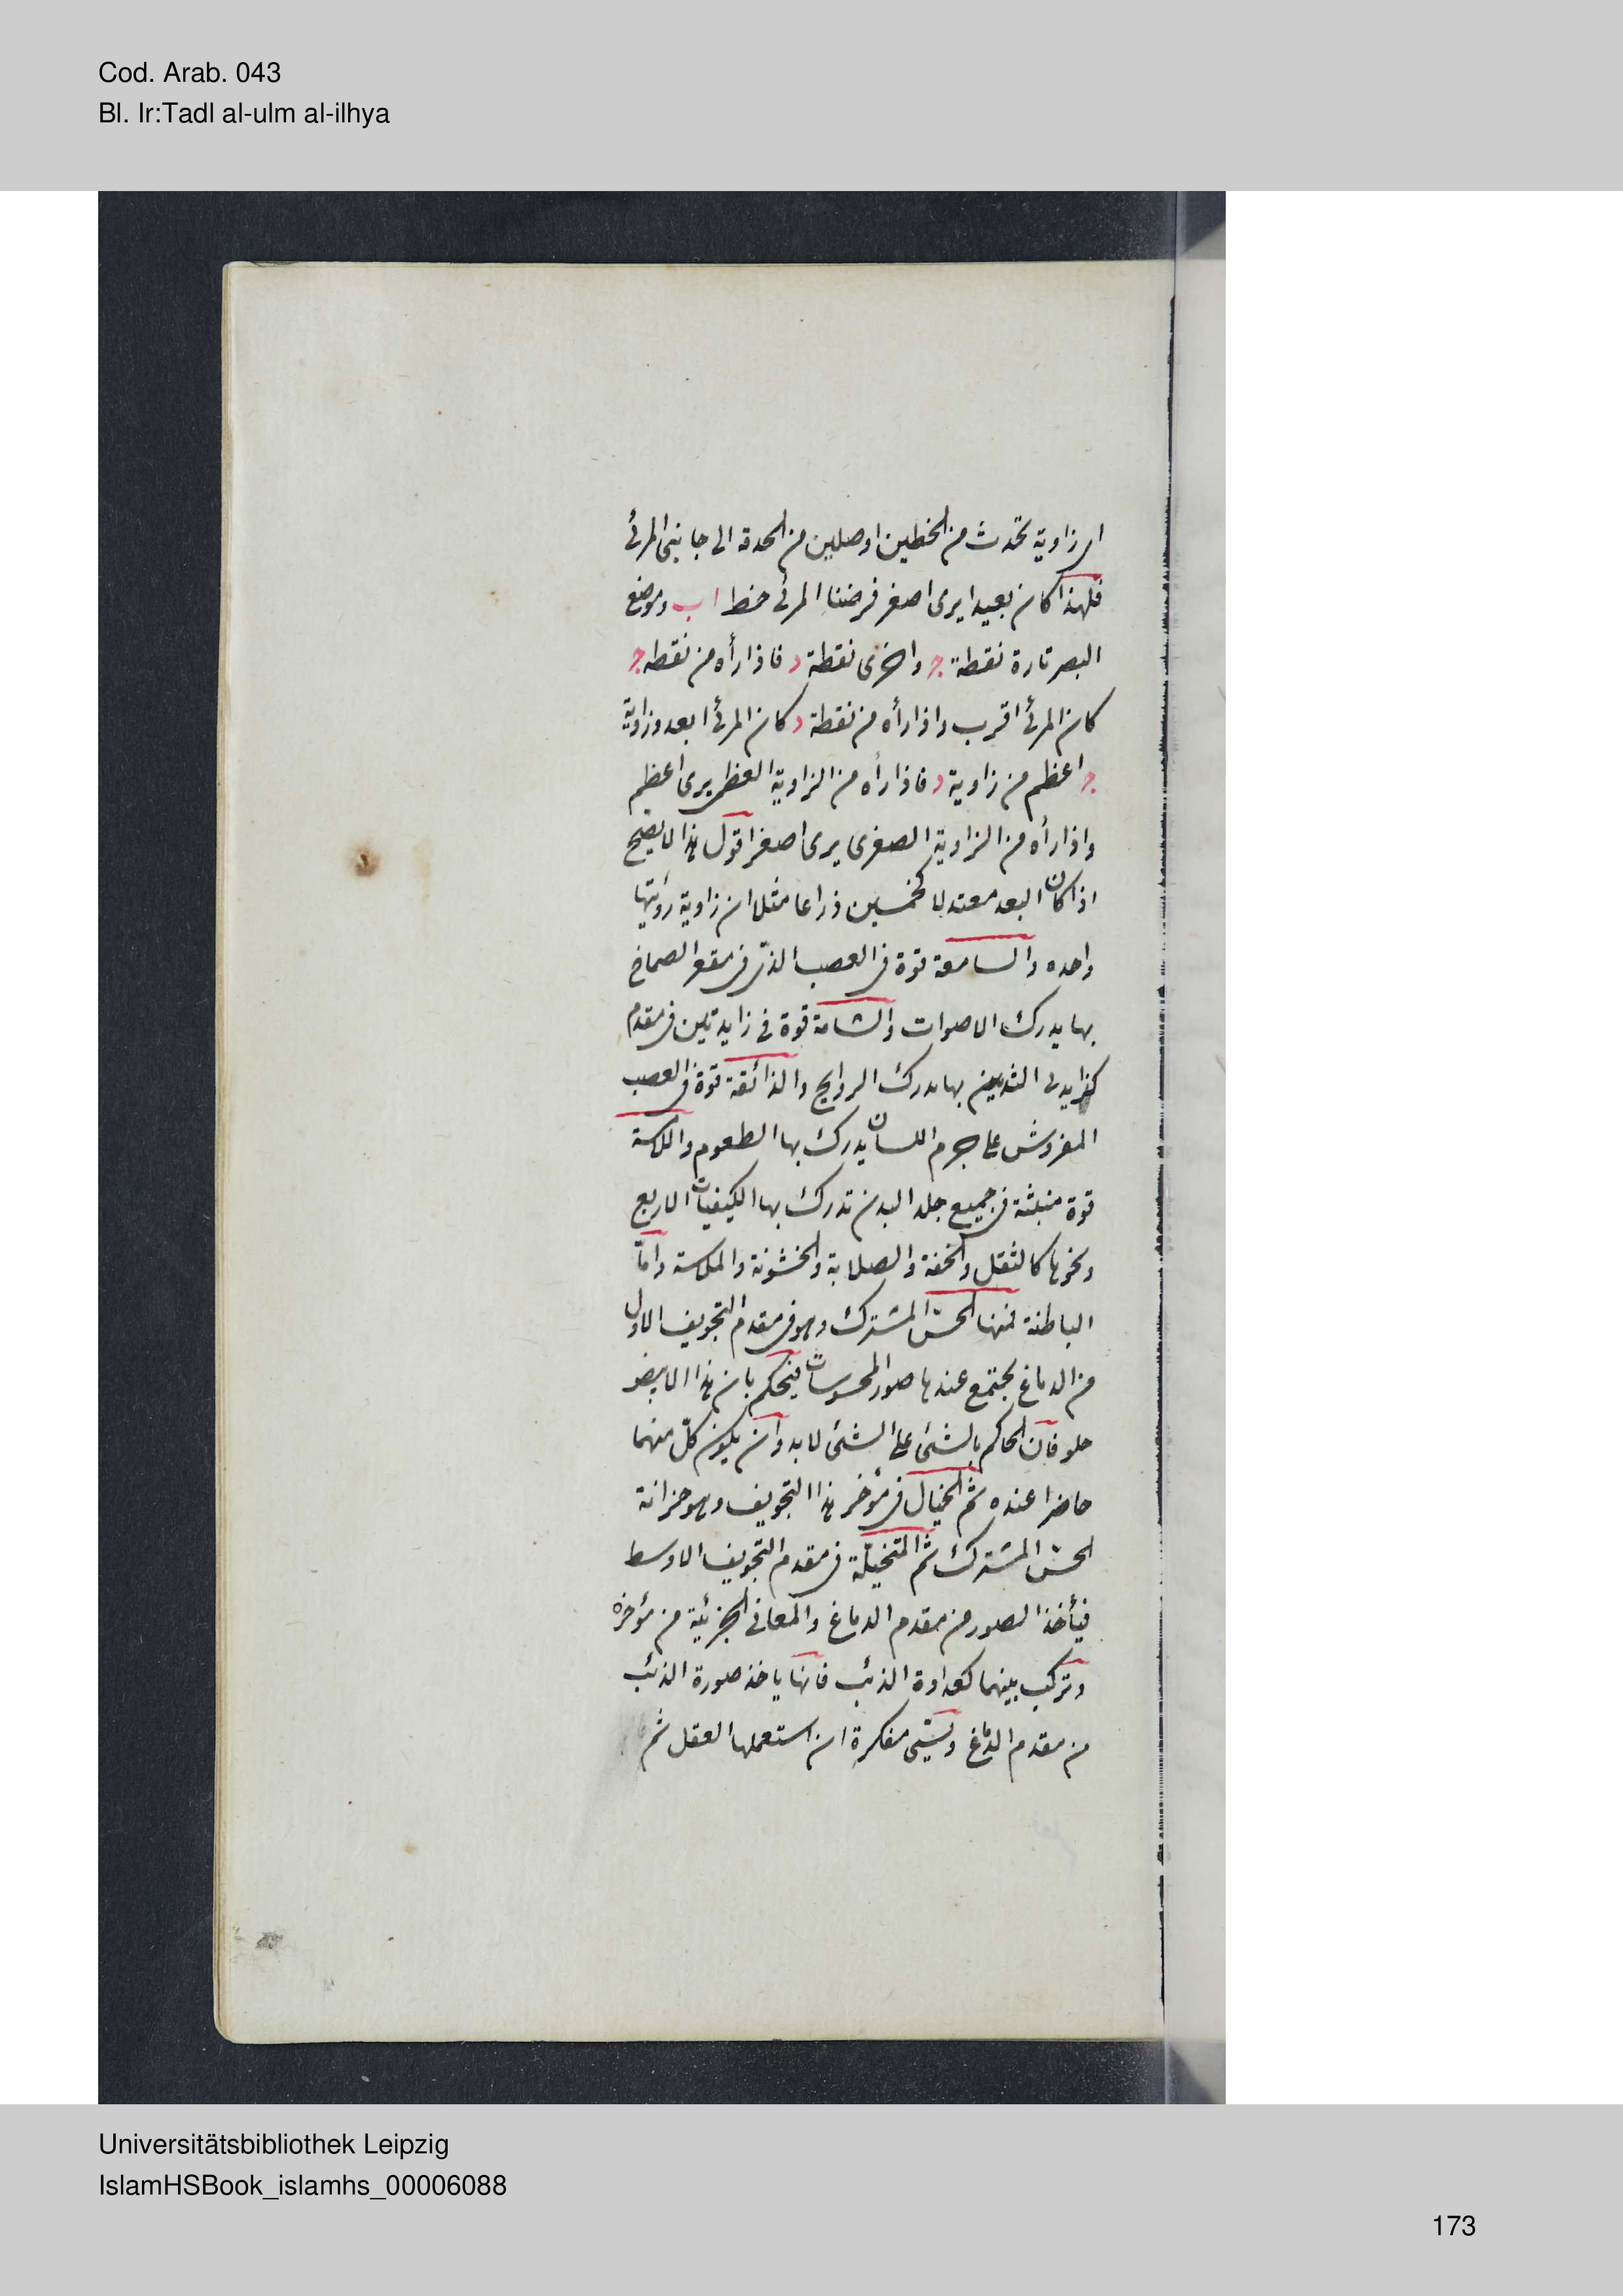 Cod. Arab. 043
Bl. Ir:Tadl al-ulm al-ilhya
اى زاوية تحدث من الخطين اوصلين من الحدقة الى جانبى المرئى
فلهذا كان بعيدا يرى اصغر فرضنا المرئى خط ا ب وموضع
البصر تارة نقطة ج واخرى نقطة د فاذا رأه من نقطه ج
كان المرئى اقرب واذا رأه من نقطة د كان المرئى ابعد وزاوية
ج اعظم من زاوية د فاذا رأه من الزاوية العظمى يرى اعظم
واذا رأه من الزاوية الصغرى يرى اصغر اقول هذا لا يصح
اذا كان البعد معتدلا كخمسين ذراعا مثلا ان زاوية رؤيتها
واحده والسامعة قوة فى العصب الذى فى مقعر الصماخ
بها يدرك الاصوات والشامة قوة فى زايدتين فى مقدم
كزايدتى الثديين بها يدرك الروايح والذائقة قوة فى العصب
المفروش على جرم اللسان يدرك بها الطعوم واللامسة
قوة منبثة فى جميع جلد البدن تدرك بها الكيفيات الاربع
ونحوها كالثقل والخفة والصلابة والخشونة والملاسة واما
الباطنة فمنها الحسّ المشترك وهو فى مقدم التجويف الاول
من الدماغ يجتمع عندها صور المحسوسات فيحكم بان هذا الابيض
حلو فان الحاكم بالشئ على الشئ لابد وان يكون كلّ منهما
حاضرا عنده ثم الخيال فى مؤخر هذا التجويف وهو خزانة
الحسّ المشترك ثم المتخيّلة فى مقدم التجويف الاوسط
فيأخذ الصور من مقدم الدماغ والمعانى الجزئية من مؤخره
وتركب بينهما كعداوة الذئب فانها ياخذ صورة الذئب
من مقدم الدماغ وتسمّى مفكرة ان استعملها العقل ثم
Universitätsbibliothek Leipzig
IslamHSBook_islamhs_00006088
173